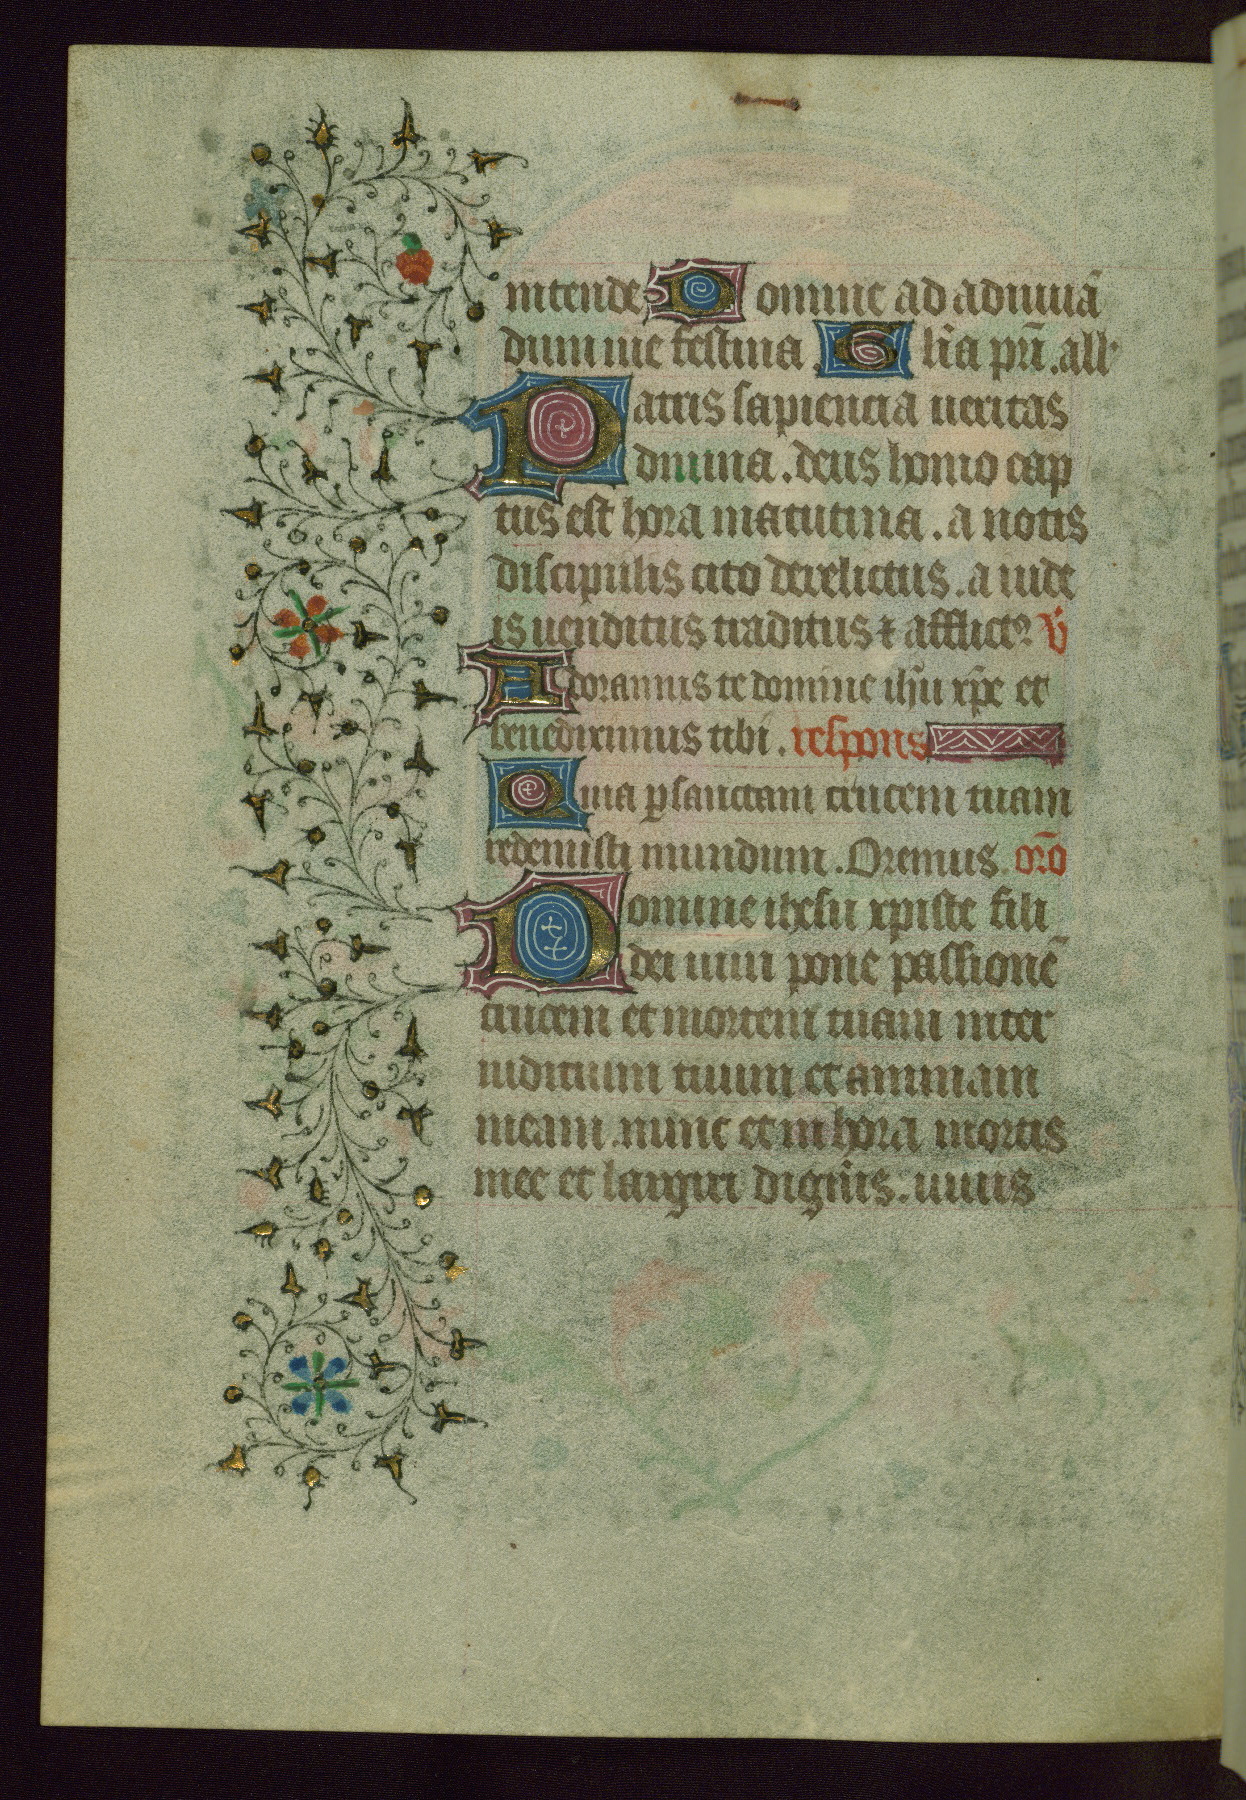 intende Domine ad adiuuā
dum me festina. Glīa pr̄i. all'
Patris sapiencia ueritas
diuina. deus homo cap
tus est hora matutina. a notis
discipulis cito derelictus. a iude
is uenditus traditus ⁊ afflictꝰ V̄
Adoramus te domine ihū xp̄e et
benediximus tibi. respons
Quia ꝑ sanctam crucem tuam
redemisti mundum. Oremus. orō
Domine ihesu xpiste fili
dei uiui pone passionē
crucem et mortem tuam inter
iuditium tuum et animam
meam. nunc et in hora mortis
mee et largiri dign̄is. uiuis